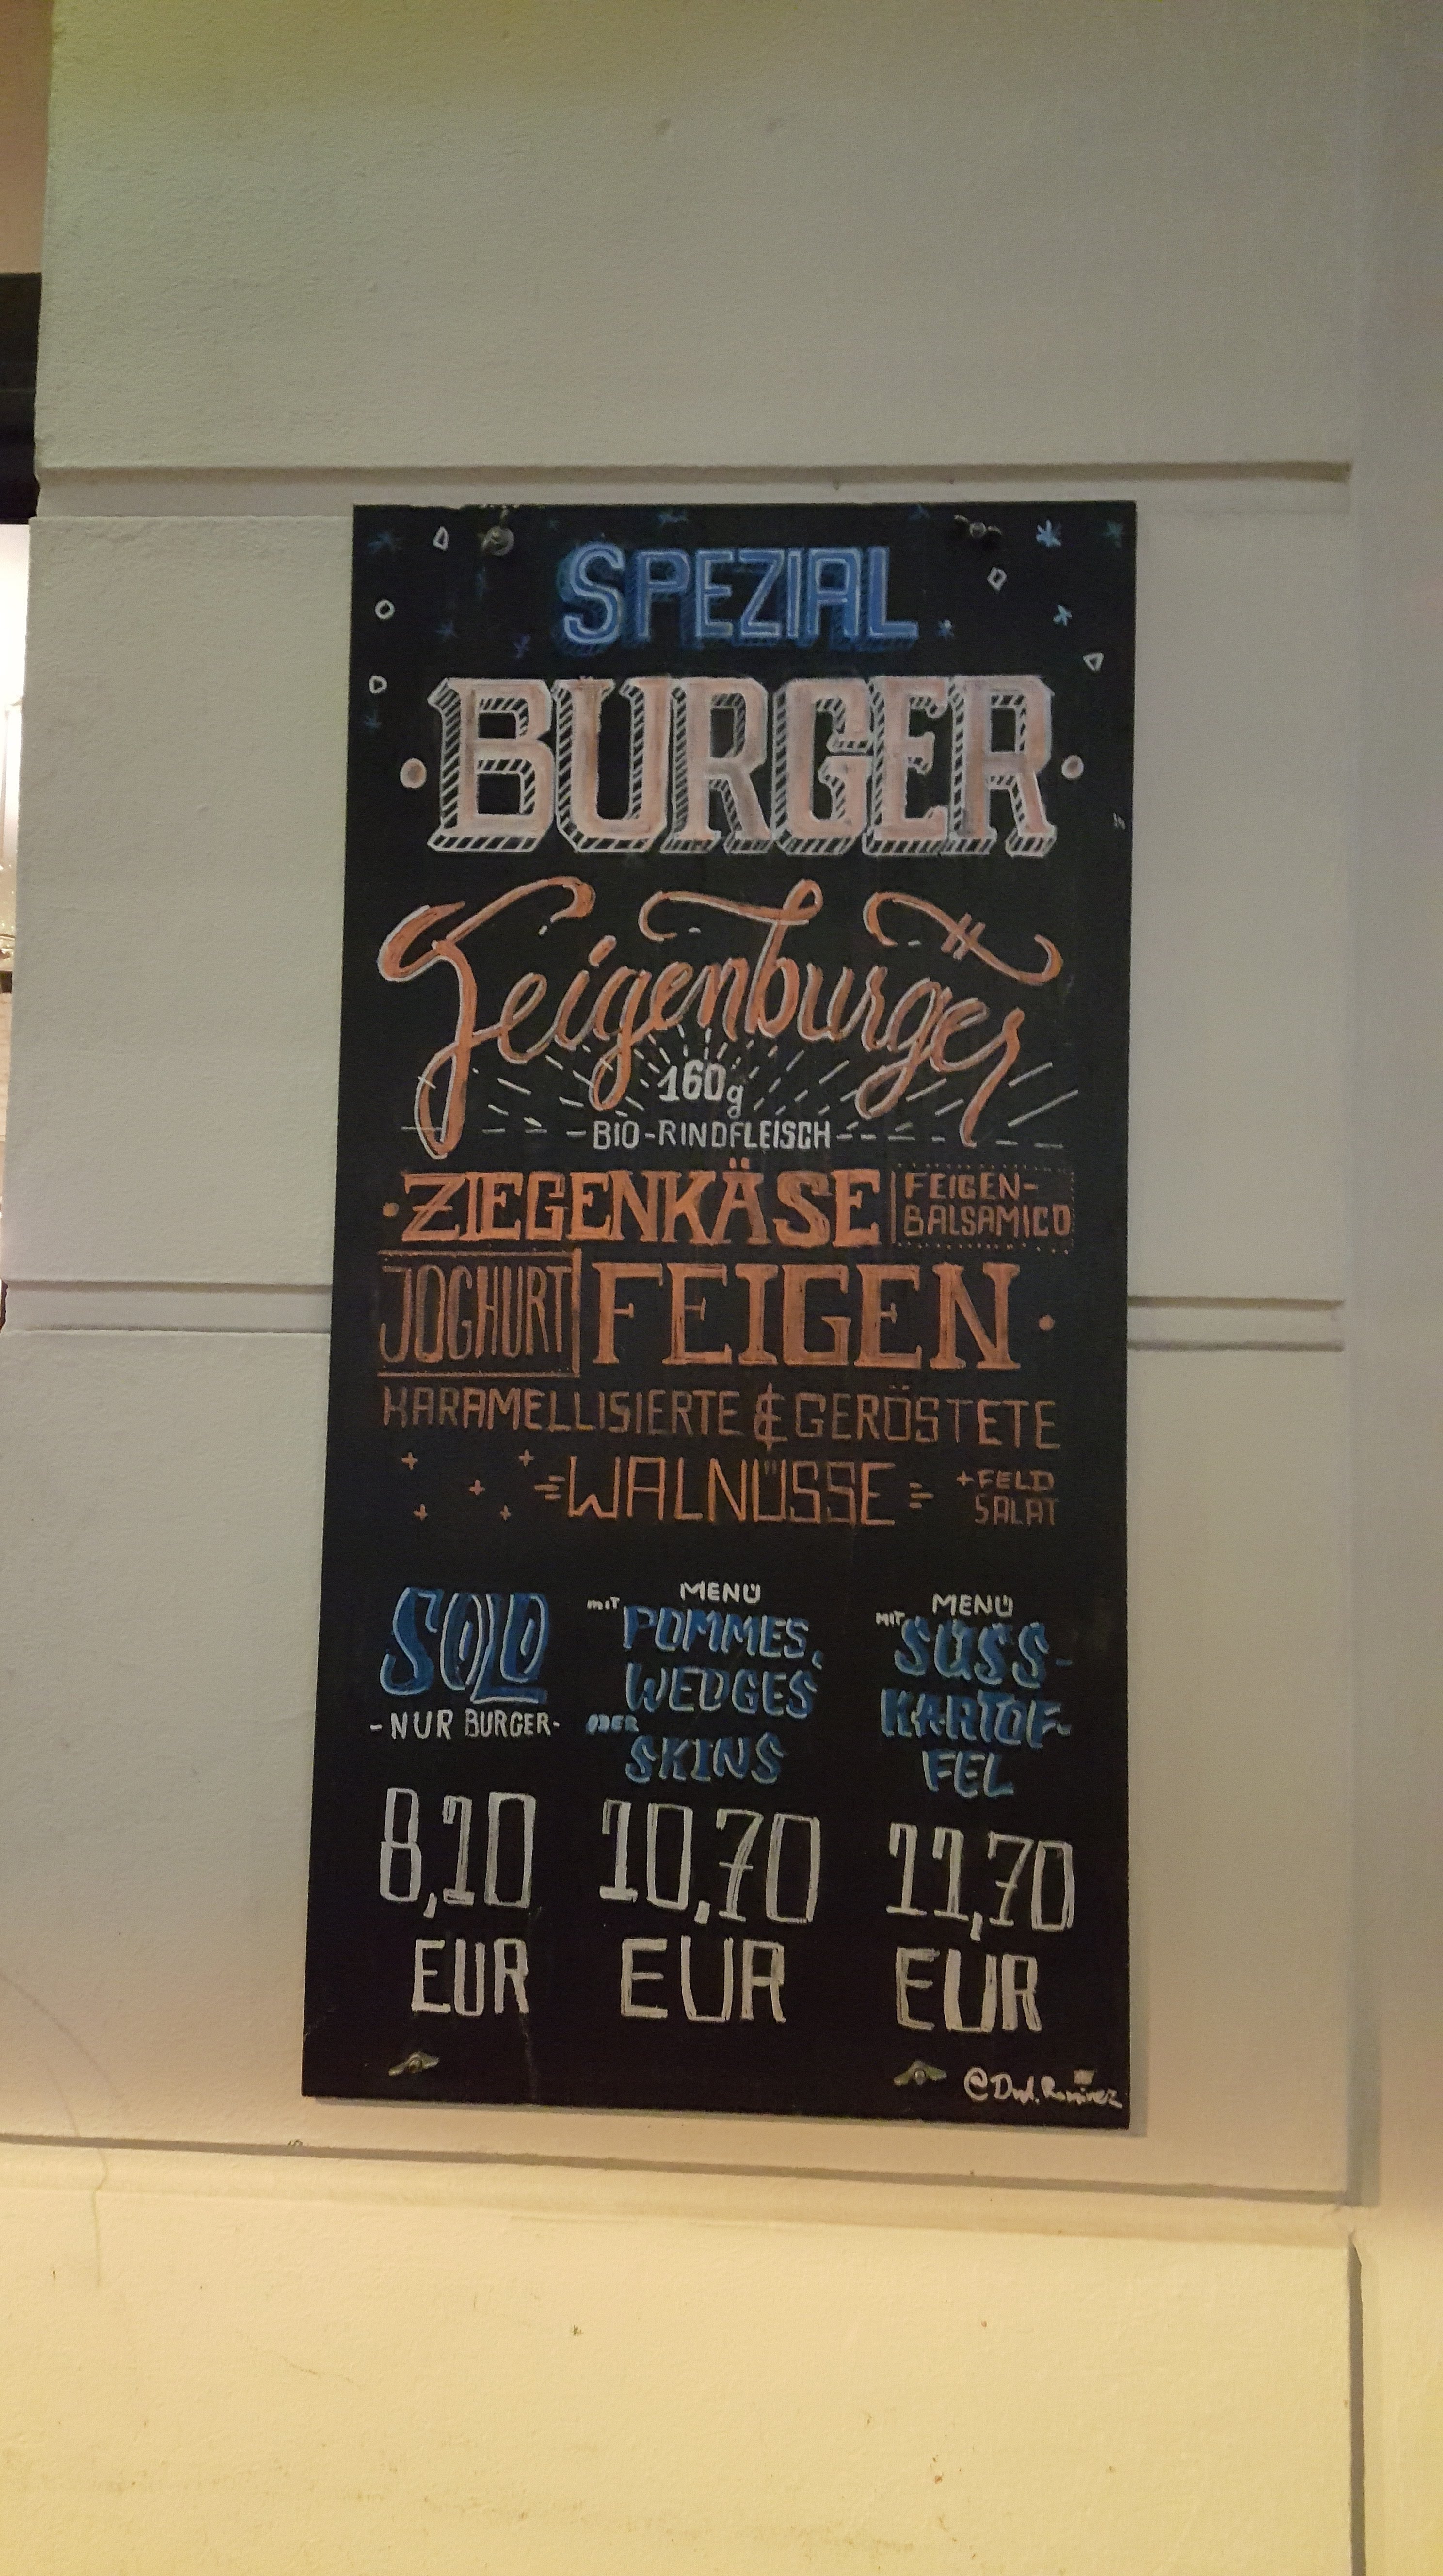 SPEZIAL
BURGER
Feigenburger
160g
BIO-RINDFLEISCH
ZIEGENKÄSE
FEIGEN-
BALSAMICO
JOGHURT
FEIGEN
KARAMELLISIERTE & GERÖSTETE
WALNÜSSE
+ FELD
SALAT
SOLO
- NUR BURGER -
8,10
EUR
MENÜ
MIT POMMES,
WEDGES
ODER
SKINS
10,70
EUR
MENÜ
MIT SÜSS-
KARTOF-
FEL
11,70
EUR
Ramirez